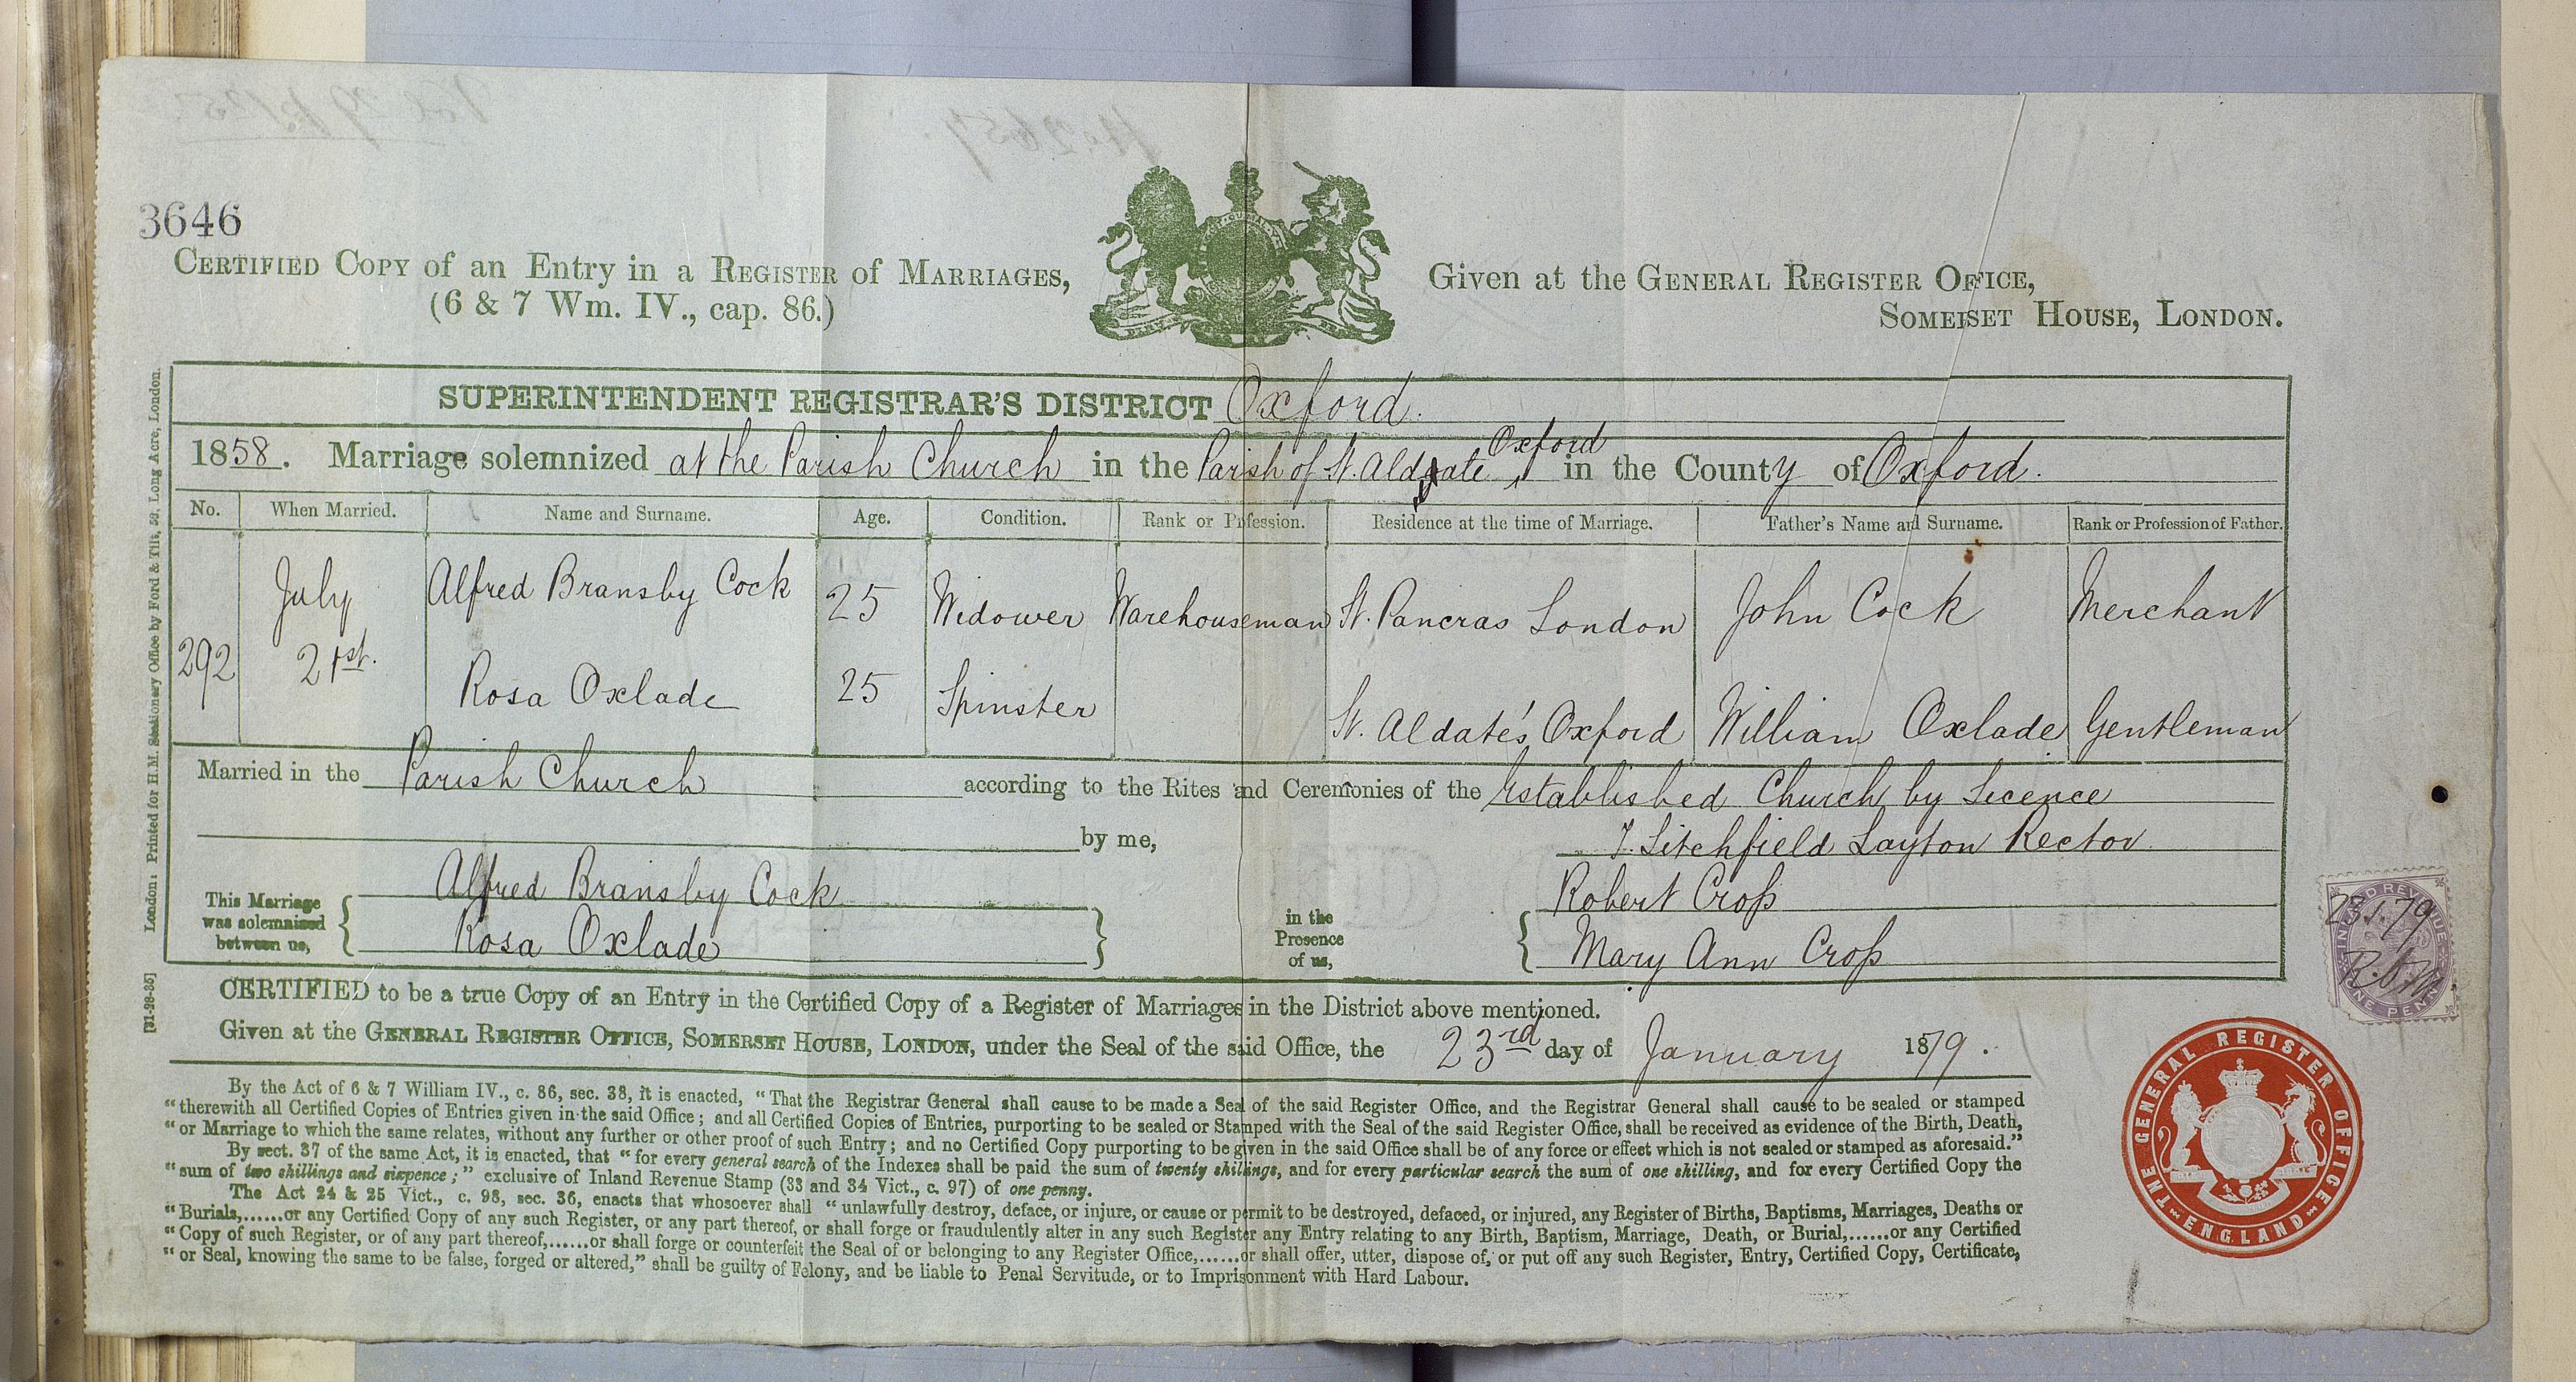 3646
CERTIFIED COPY of an Entry in a REGISTER of MARRIAGES,
(6 & 7 Wm. IV., cap. 86.)
Given at the GENERAL REGISTER OFFICE,
SOMERSET HOUSE, LONDON.
SUPERINTENDENT REGISTRAR'S DISTRICT Oxford.
1858. Marriage solemnized at the Parish Church in the Parish of St. Aldate Oxford in the County of Oxford.
No. When Married. Name and Surname. Age. Condition. Rank or Profession. Residence at the time of Marriage. Father's Name and Surname. Rank or Profession of Father.
292 July 21st. Alfred Bransby Cock 25 Widower Warehouseman St. Pancras London John Cock Merchant
Rosa Oxlade 25 Spinster St. Aldate's Oxford William Oxlade Gentleman
Married in the Parish Church according to the Rites and Ceremonies of the Established Church by Licence
by me, Litchfield Layton Rector
This Marriage was solemnized between us, Alfred Bransby Cock
Rosa Oxlade
in the Presence of us, Robert Croſs
Mary Ann Croſs
CERTIFIED to be a true Copy of an Entry in the Certified Copy of a Register of Marriages in the District above mentioned.
Given at the GENERAL REGISTER OFFICE, SOMERSET HOUSE, LONDON, under the Seal of the said Office, the 23rd day of January 1879.
By the Act of 6 & 7 William IV., c. 86, sec. 38, it is enacted, "That the Registrar General shall cause to be made a Seal of the said Register Office, and the Registrar General shall cause to be sealed or stamped
"therewith all Certified Copies of Entries given in the said Office; and all Certified Copies of Entries, purporting to be sealed or Stamped with the Seal of the said Register Office, shall be received as evidence of the Birth, Death,
"or Marriage to which the same relates, without any further or other proof of such Entry; and no Certified Copy purporting to be given in the said Office shall be of any force or effect which is not sealed or stamped as aforesaid."
By sect. 37 of the same Act, it is enacted, that "for every general search of the Indexes shall be paid the sum of twenty shillings, and for every particular search the sum of one shilling, and for every Certified Copy the
"sum of two shillings and sixpence;" exclusive of Inland Revenue Stamp (33 and 34 Vict., c. 97) of one penny.
The Act 24 & 25 Vict., c. 98, sec. 36, enacts that whosoever shall "unlawfully destroy, deface, or injure, or cause or permit to be destroyed, defaced, or injured, any Register of Births, Baptisms, Marriages, Deaths or
"Burials,......or any Certified Copy of any such Register, or any part thereof, or shall forge or fraudulently alter in any such Register any Entry relating to any Birth, Baptism, Marriage, Death, or Burial,......or any Certified
"Copy of such Register, or of any part thereof,......or shall forge or counterfeit the Seal of or belonging to any Register Office,......or shall offer, utter, dispose of, or put off any such Register, Entry, Certified Copy, Certificate,
"or Seal, knowing the same to be false, forged or altered," shall be guilty of Felony, and be liable to Penal Servitude, or to Imprisonment with Hard Labour.
London: Printed for H.M. Stationery Office by Ford & Tilt, 52, Long Acre, London.
INLAND REVENUE
ONE PENNY
23.1.79
THE GENERAL REGISTER OFFICE
ENGLAND